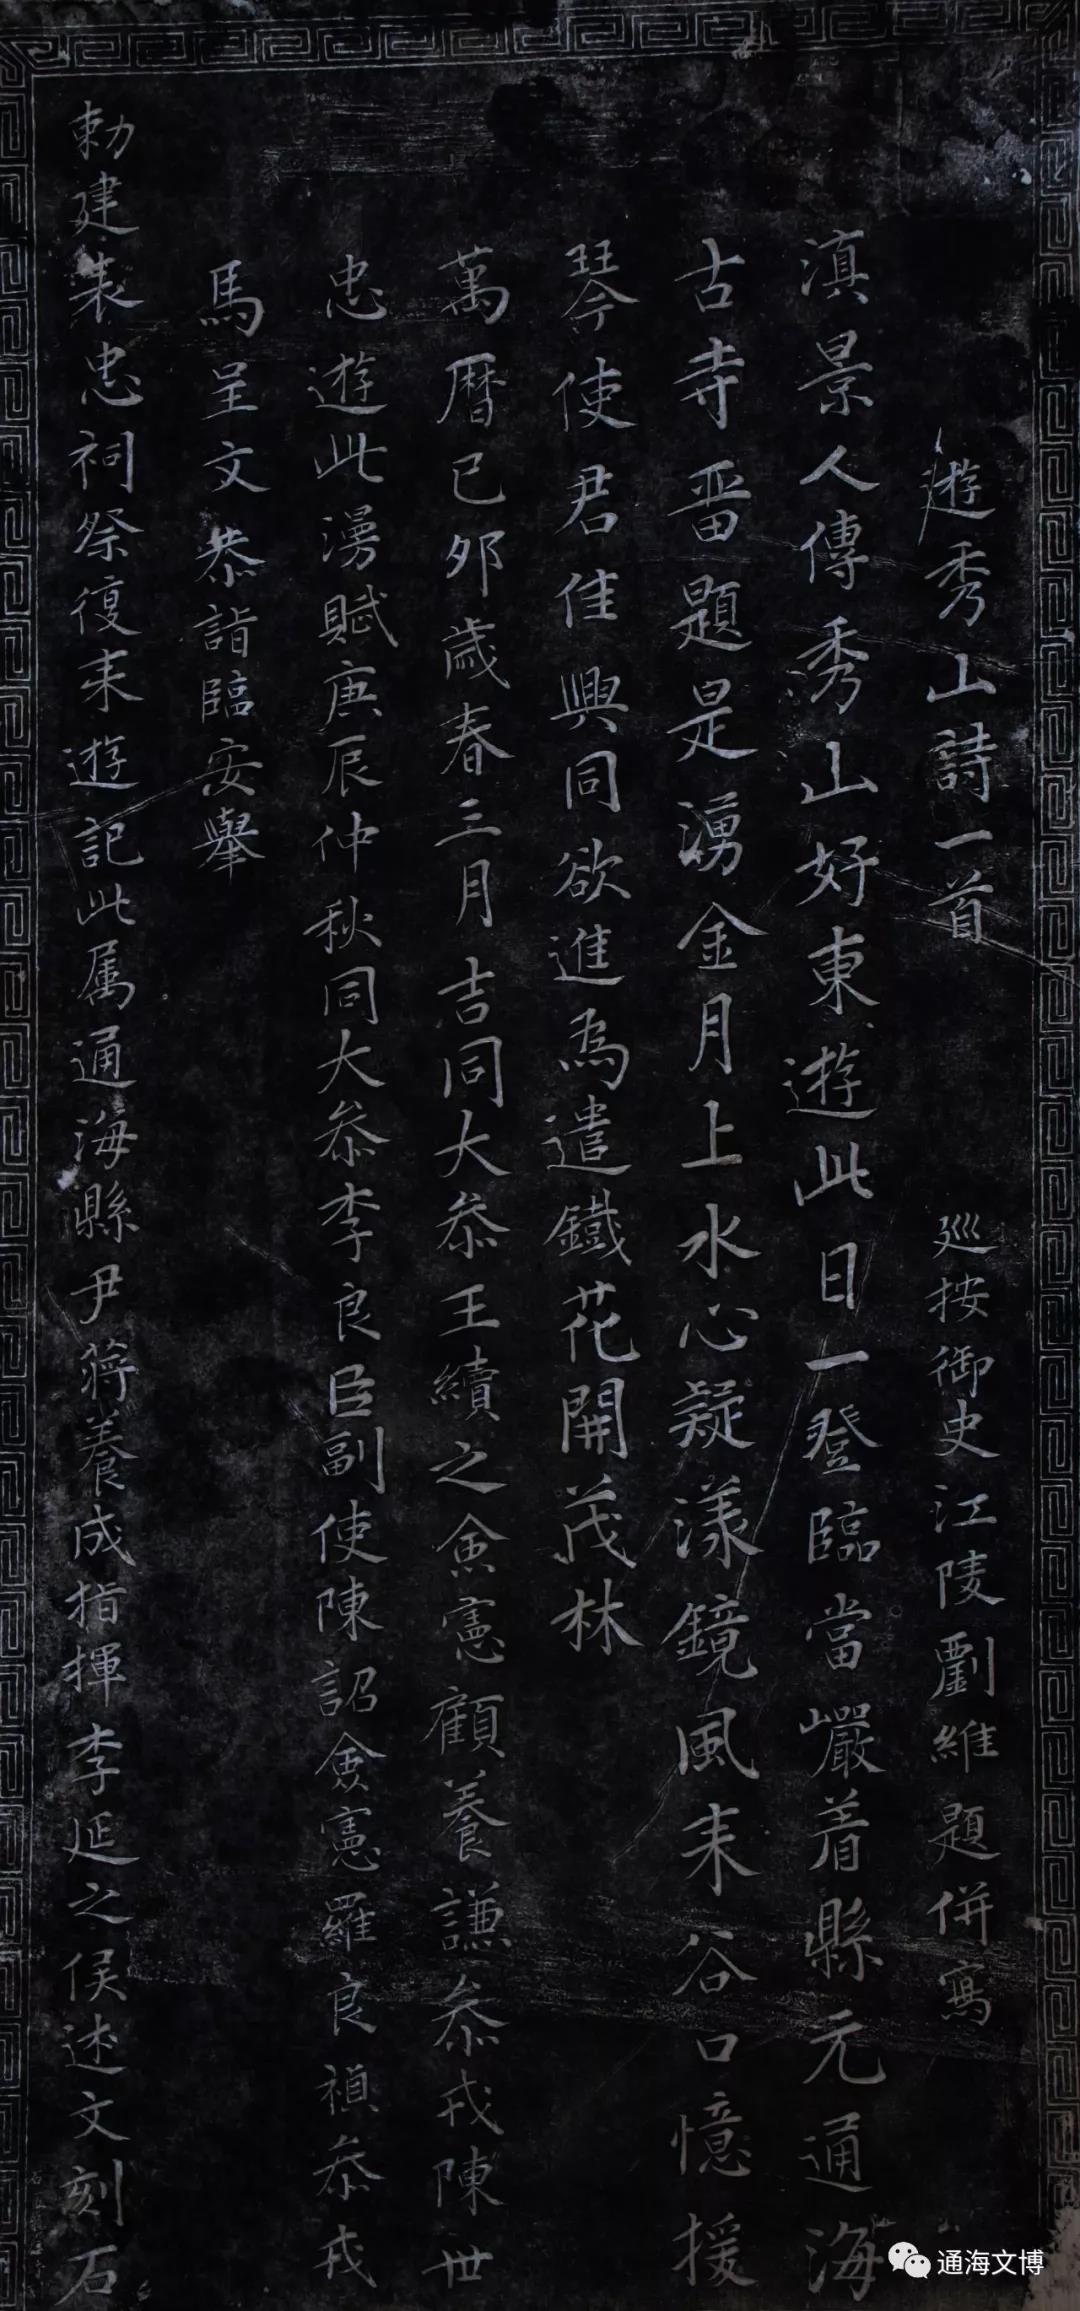 遊秀山詩一首
巡按御史江陵劉維題併寫
滇景人傳秀山好東遊此日一登臨當巖着縣元通海
古寺晋題是湧金月上水心疑漾鏡風来谷口憶援
琴使君佳興同欲進為遣鐵花開茂林
萬曆己夘歲春三月吉同大叅王續之僉憲顧養謙叅戎陳世
忠遊此湯賦庚辰仲秋同大叅李良臣副使陳詔僉憲羅良禎叅戎
馬呈文恭詣臨安舉
勅建表忠祠祭復来遊記此属通海縣尹蔣養成指揮李延之俟述文刻石
通海文博